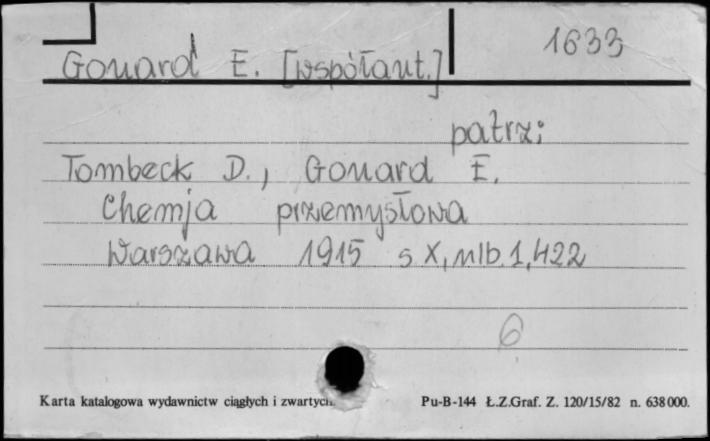 1633
Gouard E. [współaut.]
patrz:
Tombeck D., Gouard E.
Chemja przemysłowa
Warszawa 1915 s X, nlb. 1, 422
6
Karta katalogowa wydawnictw ciągłych i zwartych
Pu-B-144 Ł.Z.Graf. Z. 120/15/82 n. 638000.